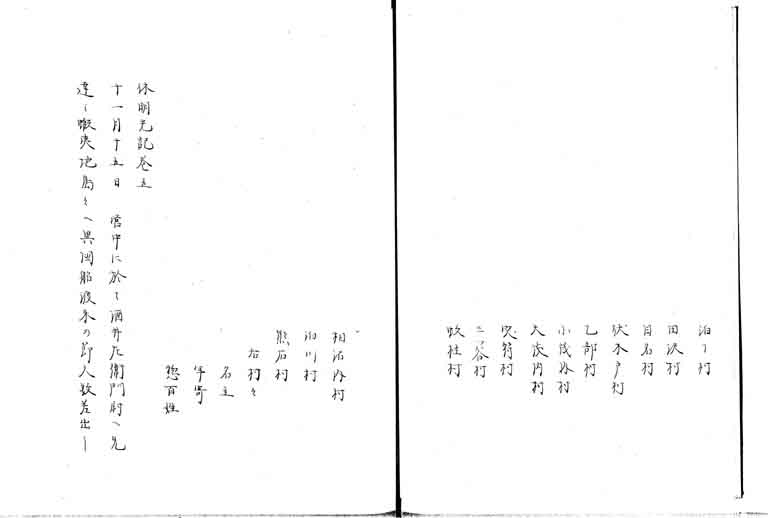 泊リ村
田沢村
目名村
伏木戸村
乙部村
小茂内村
大茂内村
突符村
三ツ谷村
蚊柱村
相沼内村
泊川村
熊石村
右村々
名主
年寄
惣百姓
休明光記巻五
十一月十五日 営中に於て酒井左衛門尉へ先
達て蝦夷地島々へ異国船渡来の節人数差出し